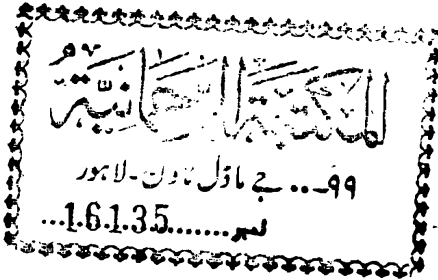 المكتبة الرحمانية
۹۹... جے ماڈل ٹاؤن - لاہور
نمبر.......1.6.1.3.5...